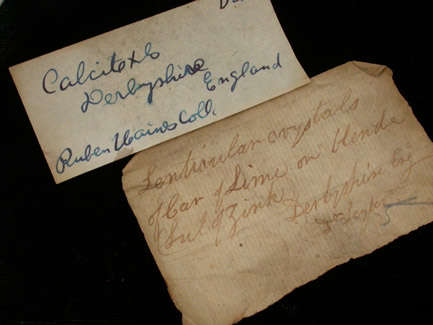 Calcite xls
Derbyshire
England
Ruben Haines Coll.
Lenticular crystals
of Car of Lime on blende
(Sul of Zink
Derbyshire Eng